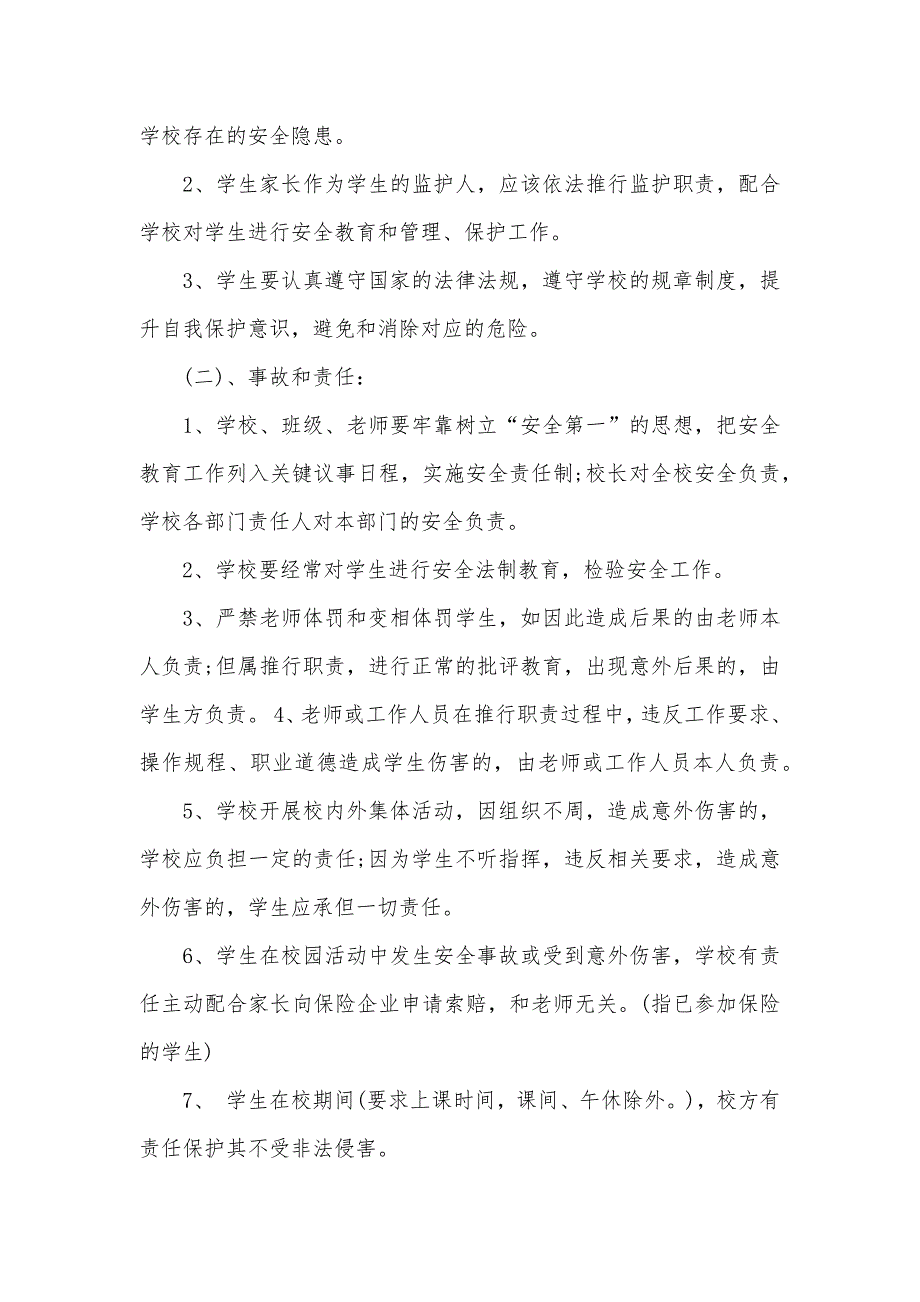 学校存在的安全隐患。
2、学生家长作为学生的监护人，应该依法推行监护职责，配合
学校对学生进行安全教育和管理、保护工作。
3、学生要认真遵守国家的法律法规，遵守学校的规章制度，提
升自我保护意识，避免和消除对应的危险。
(二)、事故和责任：
1、学校、班级、老师要牢靠树立“安全第一”的思想，把安全
教育工作列入关键议事日程，实施安全责任制;校长对全校安全负责，
学校各部门责任人对本部门的安全负责。
2、学校要经常对学生进行安全法制教育，检验安全工作。
3、严禁老师体罚和变相体罚学生，如因此造成后果的由老师本
人负责;但属推行职责，进行正常的批评教育，出现意外后果的，由
学生方负责。 4、老师或工作人员在推行职责过程中，违反工作要求、
操作规程、职业道德造成学生伤害的，由老师或工作人员本人负责。
5、学校开展校内外集体活动，因组织不周，造成意外伤害的，
学校应负担一定的责任;因为学生不听指挥，违反相关要求，造成意
外伤害的，学生应承但一切责任。
6、学生在校园活动中发生安全事故或受到意外伤害，学校有责
任主动配合家长向保险企业申请索赔，和老师无关。(指已参加保险
的学生)
7、 学生在校期间(要求上课时间，课间、午休除外。)，校方有
责任保护其不受非法侵害。